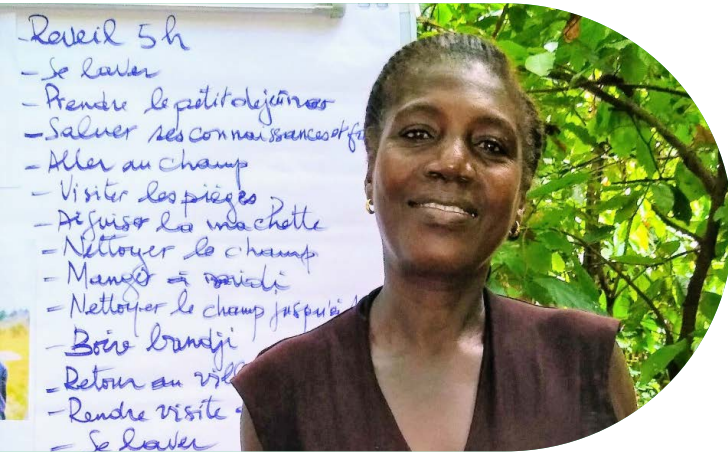 Reveil 5h
- Se laver
- Prendre le petit dejeuner
- Saluer ses connaissances et
- Aller au champ
- Visiter les pièges
- Aiguiser la machette
- Nettoyer le champ
- Manger à midi
- Nettoyer le champ jusqu'à
- Boire bandji
- Retour au vill
- Rendre visite
- Se laver